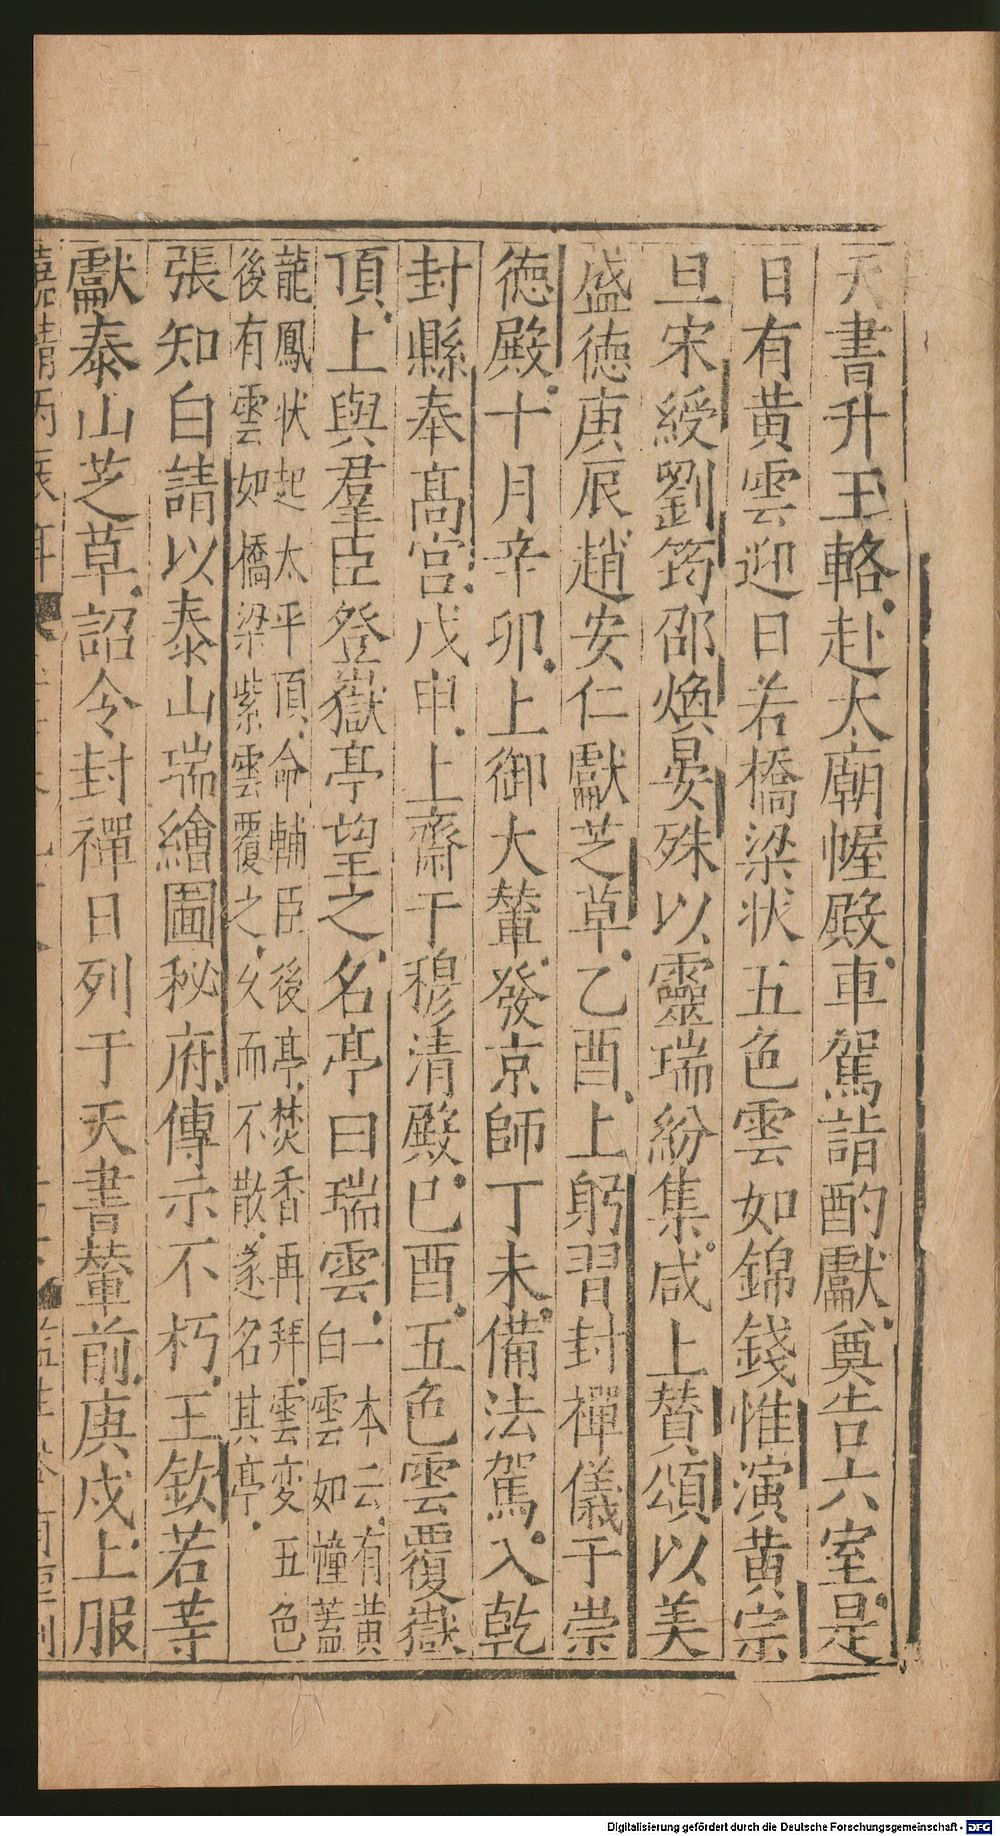 天書升玉輅赴太廟幄殿車駕詣酌獻奠告六室是
日有黃雲迎日若橋梁狀五色雲如錦錢惟演黃宗
旦宋綬劉筠邵煥晏殊以靈瑞紛集咸上賛頌以美
盛德庚辰趙安仁獻芝草乙酉上躬習封禪儀于崇
德殿十月辛卯上御大輦發京師丁未備法駕入乾
封縣奉高宫戊申上齋于穆清殿已酉五色雲覆嶽
頂上與羣臣登嶽亭望之名亭曰瑞雲一本云有黃
白雲如幢蓋
龍鳳狀起太平頂命輔臣後亭焚香再拜雲变五色
後有雲如橋梁紫雲覆之乆而不散遂名其亭
張知白請以泰山瑞繪圖秘府傳示不朽王欽若等
獻泰山芝草詔令封禪日列于天書輦前庚戍上服
Digitalisierung gefördert durch die Deutsche Forschungsgemeinschaft - DFG